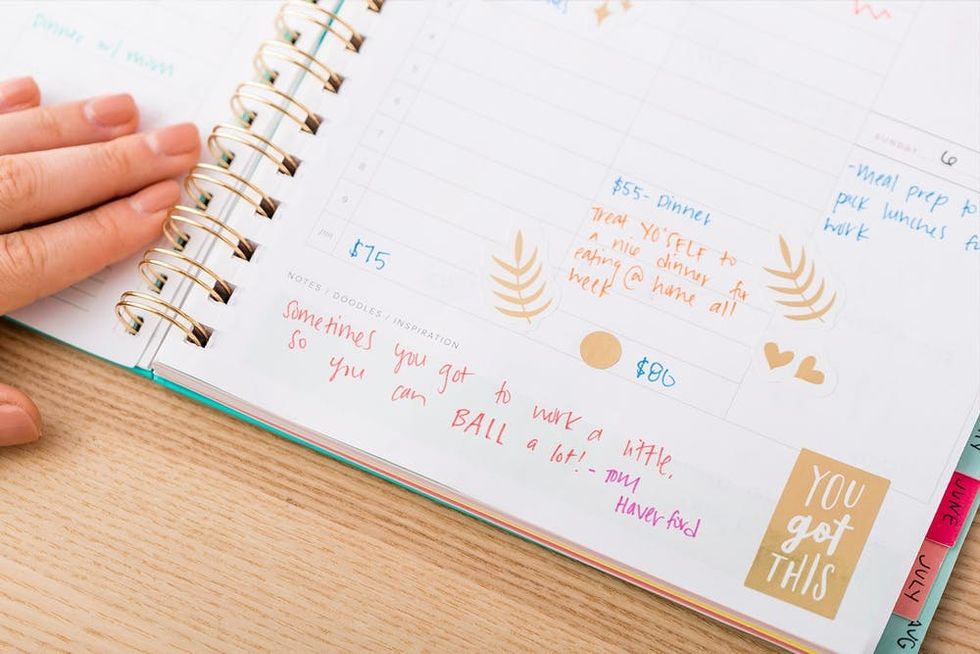 Dinner w/ mom
5
6
7
8
9
$75
$55- Dinner
Treat YO'SELF to
a nice dinner for
eating @ home all
week
$80
SUNDAY 6
-Meal prep to
pack lunches
work
NOTES / DOODLES / INSPIRATION
Sometimes you got to work a little,
so you can BALL a lot! - Tom
Haverford
YOU
got
THIS
JUNE
JULY
AUG